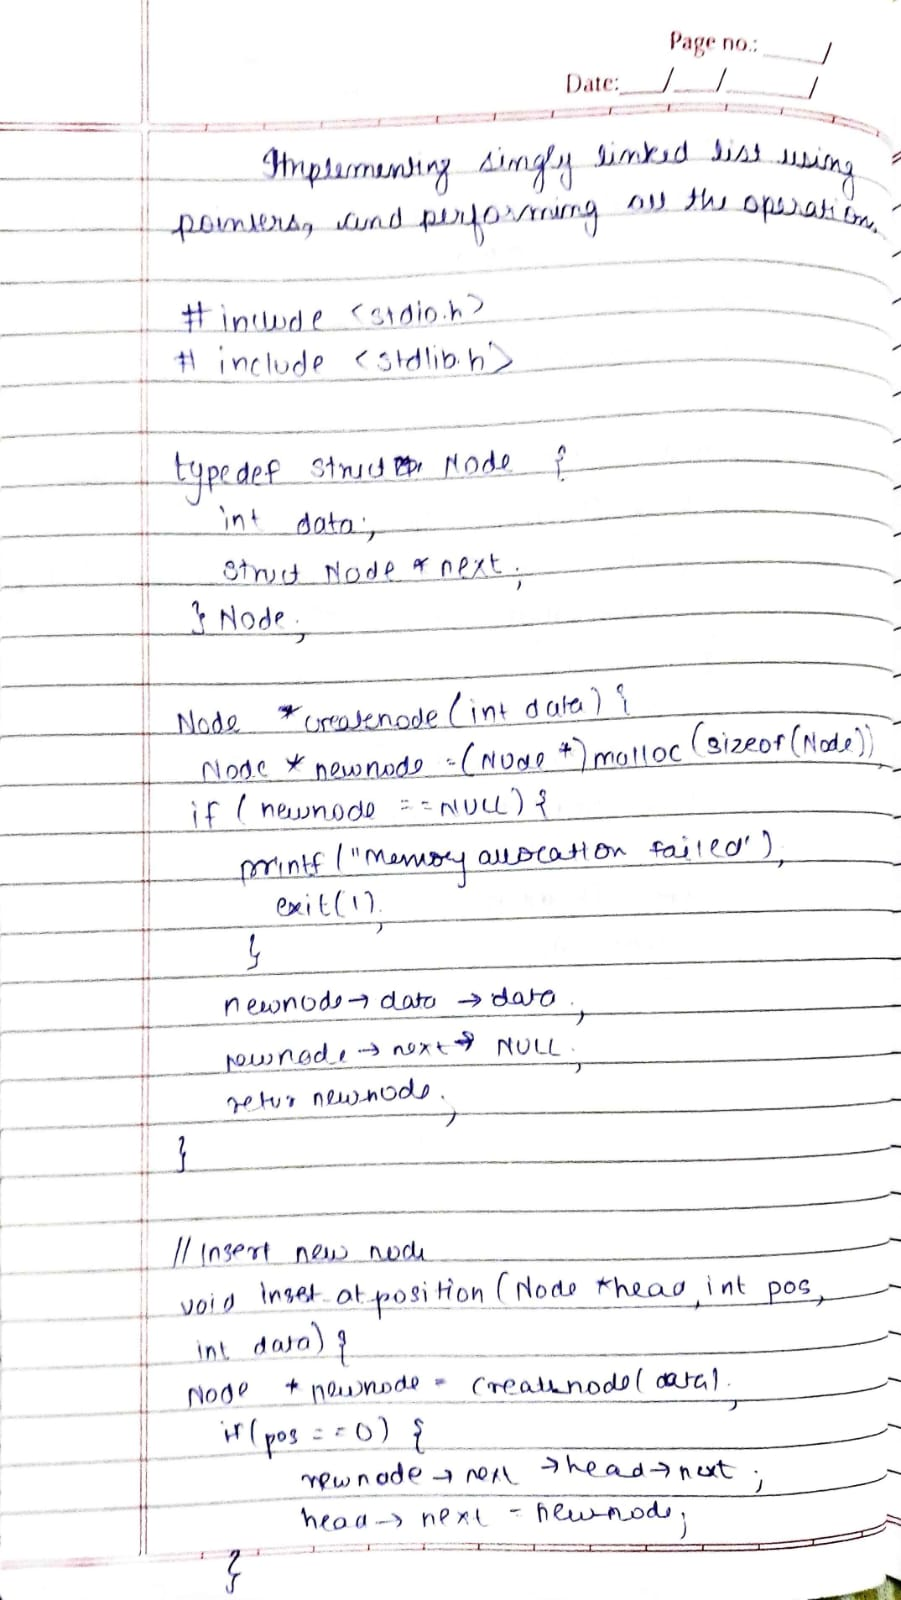 Page no.:
Date:
Implementing singly linked list using
pointers, and performing all the operation.
# include <stdio.h>
# include <stdlib.h>
typedef struct Node {
int data;
struct Node * next;
} Node;
Node *createnode (int data) {
Node * newnode =(Node *) malloc (sizeof (Node))
if ( newnode == NULL) {
printf ("Memory allocation failed");
exit(1);
}
newnode → data → data;
newnode → next → NULL;
retur newnode;
}
// Insert new node
void inset at position (Node *head, int pos,
int data) {
Node * newnode = createnode( data);
if (pos == 0) {
newnode → next → head → next ;
head → next = newnode;
}